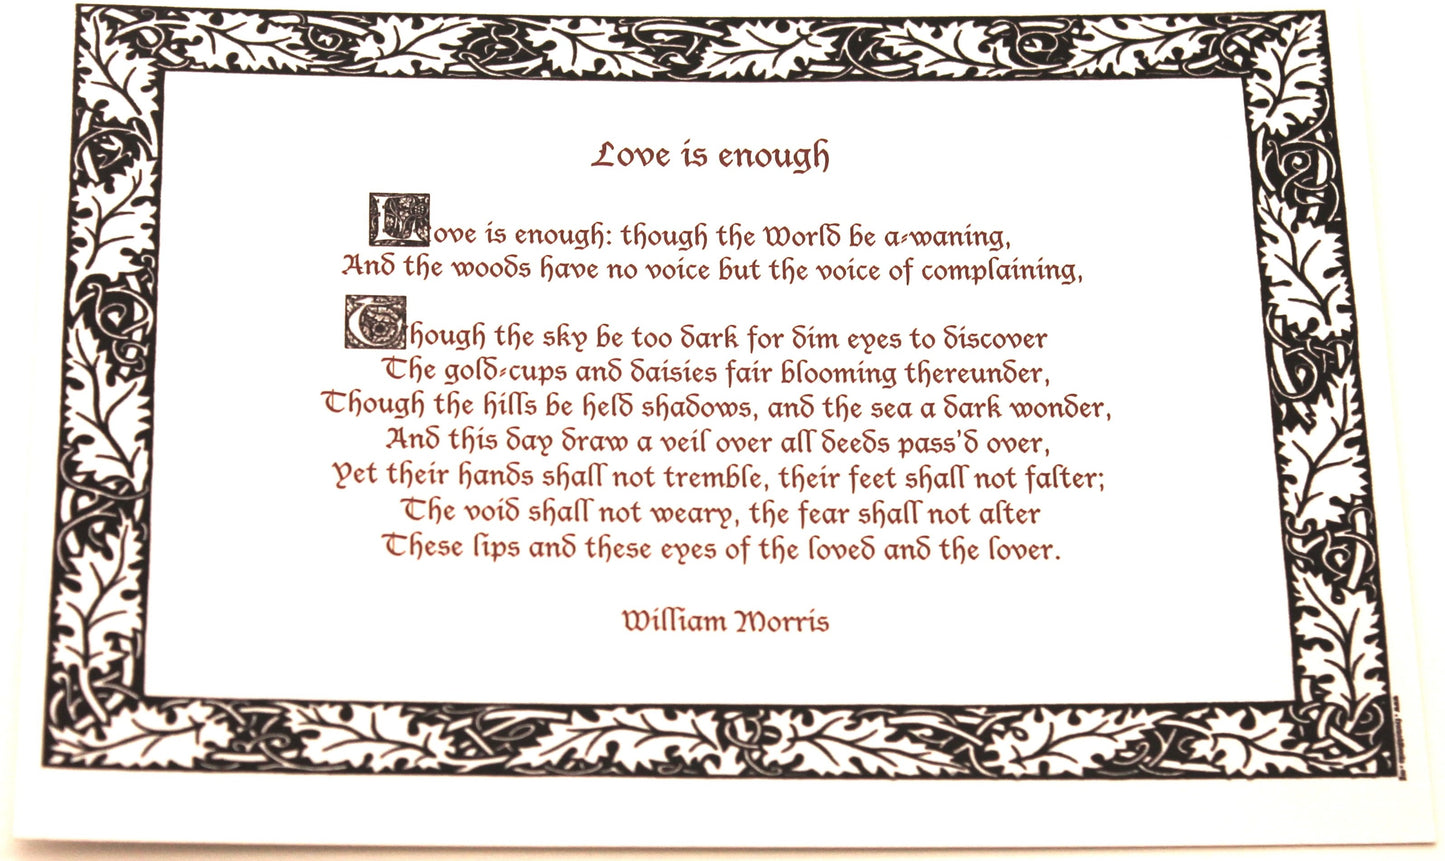 Love is enough
Love is enough: though the World be a-waning,
And the woods have no voice but the voice of complaining,
Though the sky be too dark for dim eyes to discover
The gold-cups and daisies fair blooming thereunder,
Though the hills be held shadows, and the sea a dark wonder,
And this day draw a veil over all deeds pass'd over,
Yet their hands shall not tremble, their feet shall not falter;
The void shall not weary, the fear shall not alter
These lips and these eyes of the loved and the lover.
William Morris